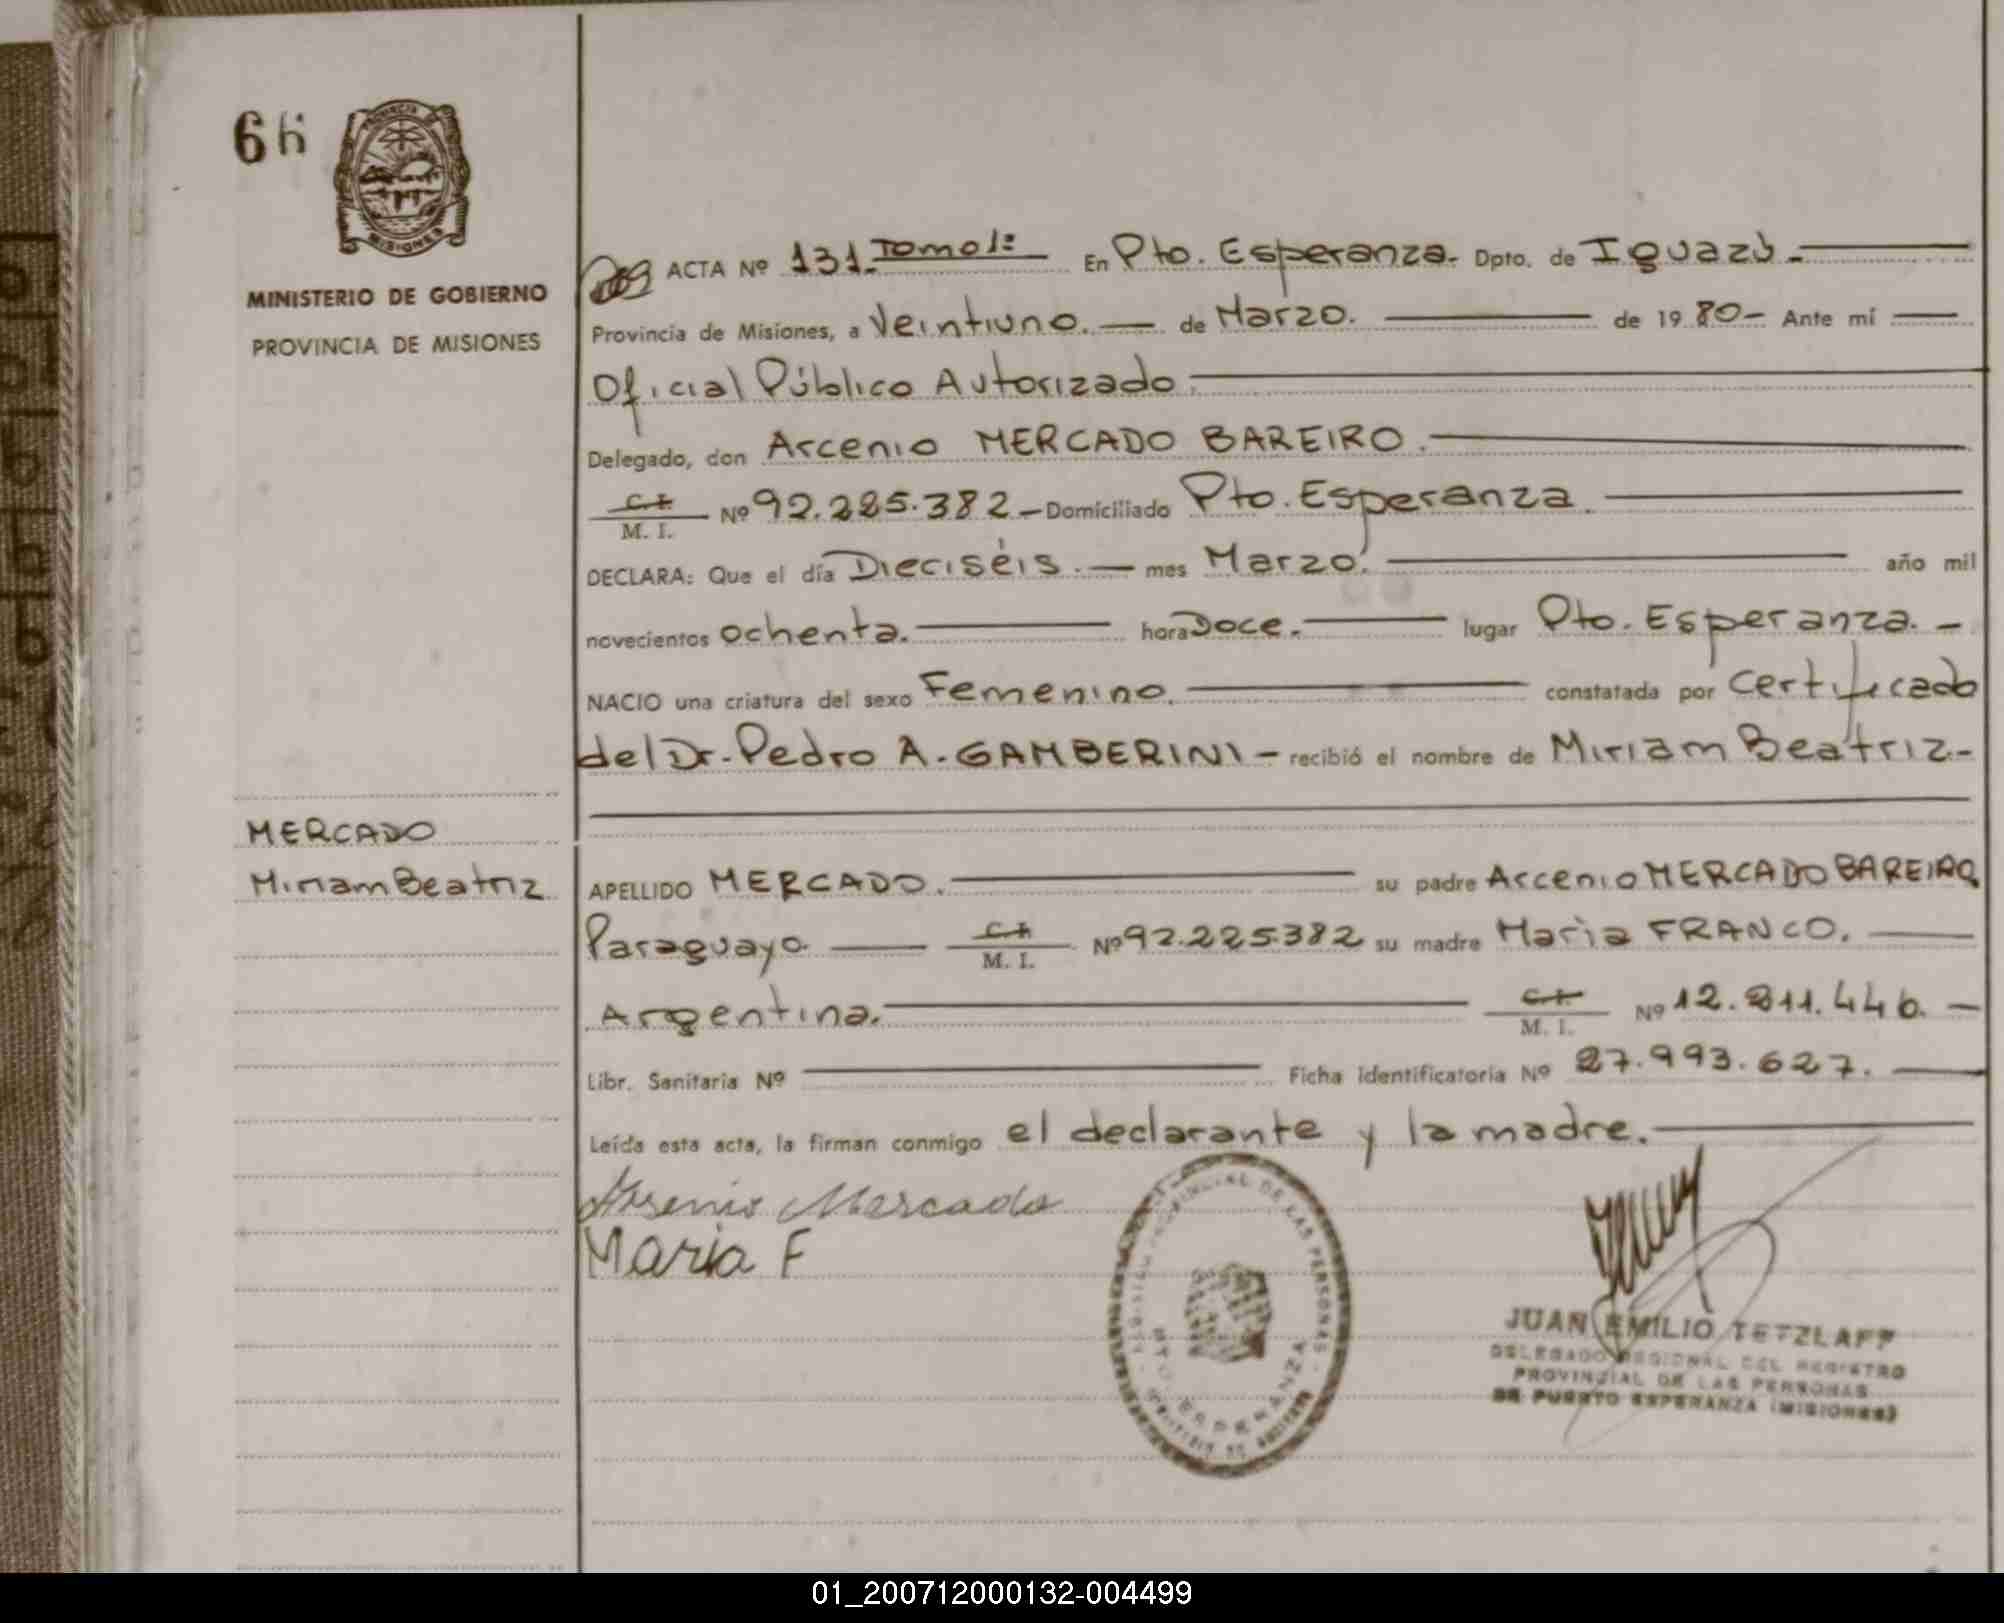 66
PROVINCIA
MISIONES
MINISTERIO DE GOBIERNO
PROVINCIA DE MISIONES
ACTA Nº 131. Tomo 1º En Pto. Esperanza. Dpto. de Iguazú.
Provincia de Misiones, a Veintiuno. de Marzo. de 19 80 Ante mí
Oficial Público Autorizado.
Delegado, don Arcenio MERCADO BAREIRO.
C. I.
M. I. Nº 92.225.382 Domiciliado Pto. Esperanza.
DECLARA: Que el día Dieciséis. mes Marzo. año mil
novecientos ochenta. hora Doce. lugar Pto. Esperanza.
NACIO una criatura del sexo Femenino. constatada por Certificado
del Dr. Pedro A. GAMBERINI recibió el nombre de Miriam Beatriz
MERCADO
Miriam Beatriz
APELLIDO MERCADO. su padre Arcenio MERCADO BAREIRO
Paraguayo. C. I. M. I. Nº 92.225.382 su madre María FRANCO.
Argentina. C. I. M. I. Nº 12.211.446.
Libr. Sanitaria Nº Ficha Identificatoria Nº 27.993.627.
Leída esta acta, la firman conmigo el declarante y la madre.
Arsenio Mercado
Maria F
PROVINCIAL DE LAS PERSONAS
PTO. ESPERANZA
JUAN EMILIO TETZLAFF
DELEGADO REGIONAL DEL REGISTRO
PROVINCIAL DE LAS PERSONAS
DE PUERTO ESPERANZA (MISIONES)
01_200712000132-004499